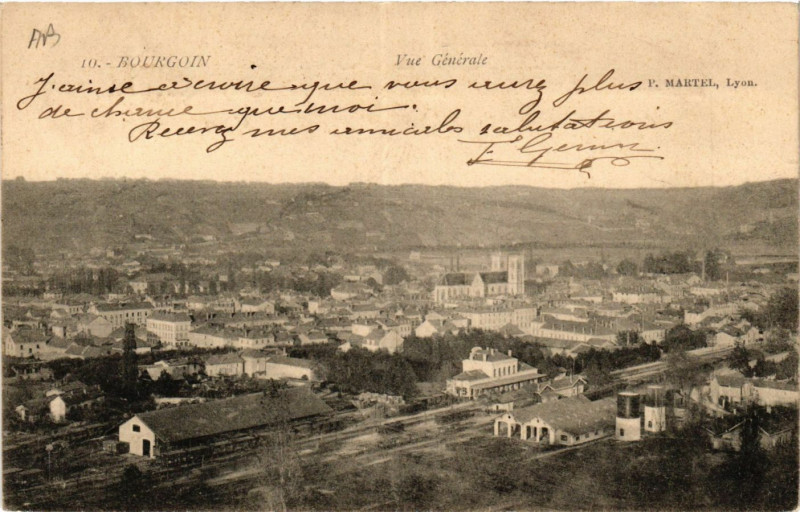 10. - BOURGOIN
Vue Générale
J'aime à croire que vous aurez plus
P. MARTEL, Lyon.
de chance que moi.
Recevez mes amicales salutations